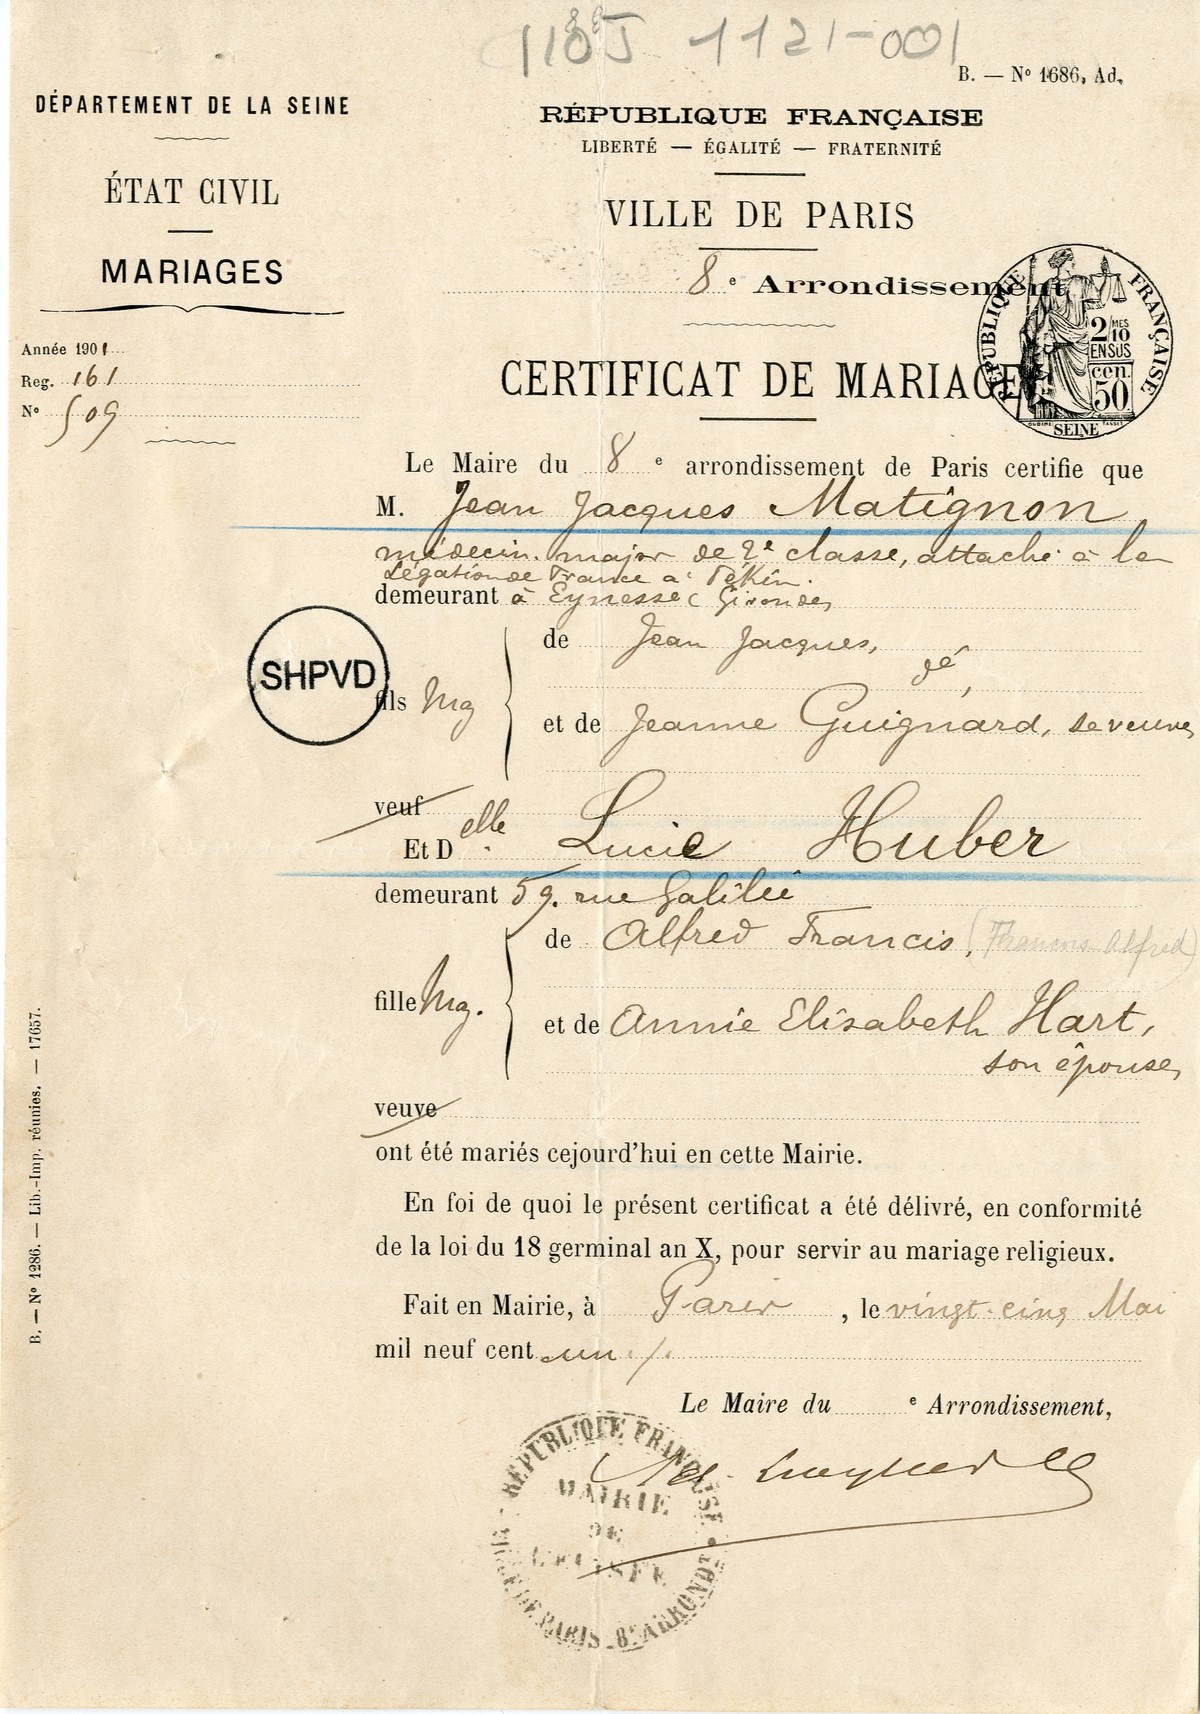 1185J 1121-001
B. — Nº 1686, Ad.
DÉPARTEMENT DE LA SEINE
ÉTAT CIVIL
MARIAGES
Année 1901
Reg. 161
Nº 509
RÉPUBLIQUE FRANÇAISE
LIBERTÉ — ÉGALITÉ — FRATERNITÉ
VILLE DE PARIS
8e Arrondissement
RÉPUBLIQUE FRANÇAISE
2/10 MES
EN SUS
50 cen.
SEINE
CERTIFICAT DE MARIAGE
Le Maire du 8e arrondissement de Paris certifie que
M. Jean Jacques Matignon
médecin-major de 2e classe, attaché à la
Légation de France à Pékin.
demeurant à Eynesse (Gironde)
SHPVD
fils Mg de Jean Jacques,
dé,
et de Jeanne Guignard, sa veuve,
veuf
Et Delle Lucie Huber
demeurant 59, rue Galilée
fille Mg. de Alfred Francis, (François Alfred)
et de Annie Elisabeth Hart,
son épouse,
veuve
ont été mariés cejourd'hui en cette Mairie.
En foi de quoi le présent certificat a été délivré, en conformité
de la loi du 18 germinal an X, pour servir au mariage religieux.
Fait en Mairie, à Paris, le vingt-cinq Mai
mil neuf cent un ./.
Le Maire du e Arrondissement,
RÉPUBLIQUE FRANÇAISE
MAIRIE
DE
L'ELYSÉE
VILLE DE PARIS - 8e ARRONDT
B. — Nº 1286. — Lib.-Imp. réunies. — 17657.